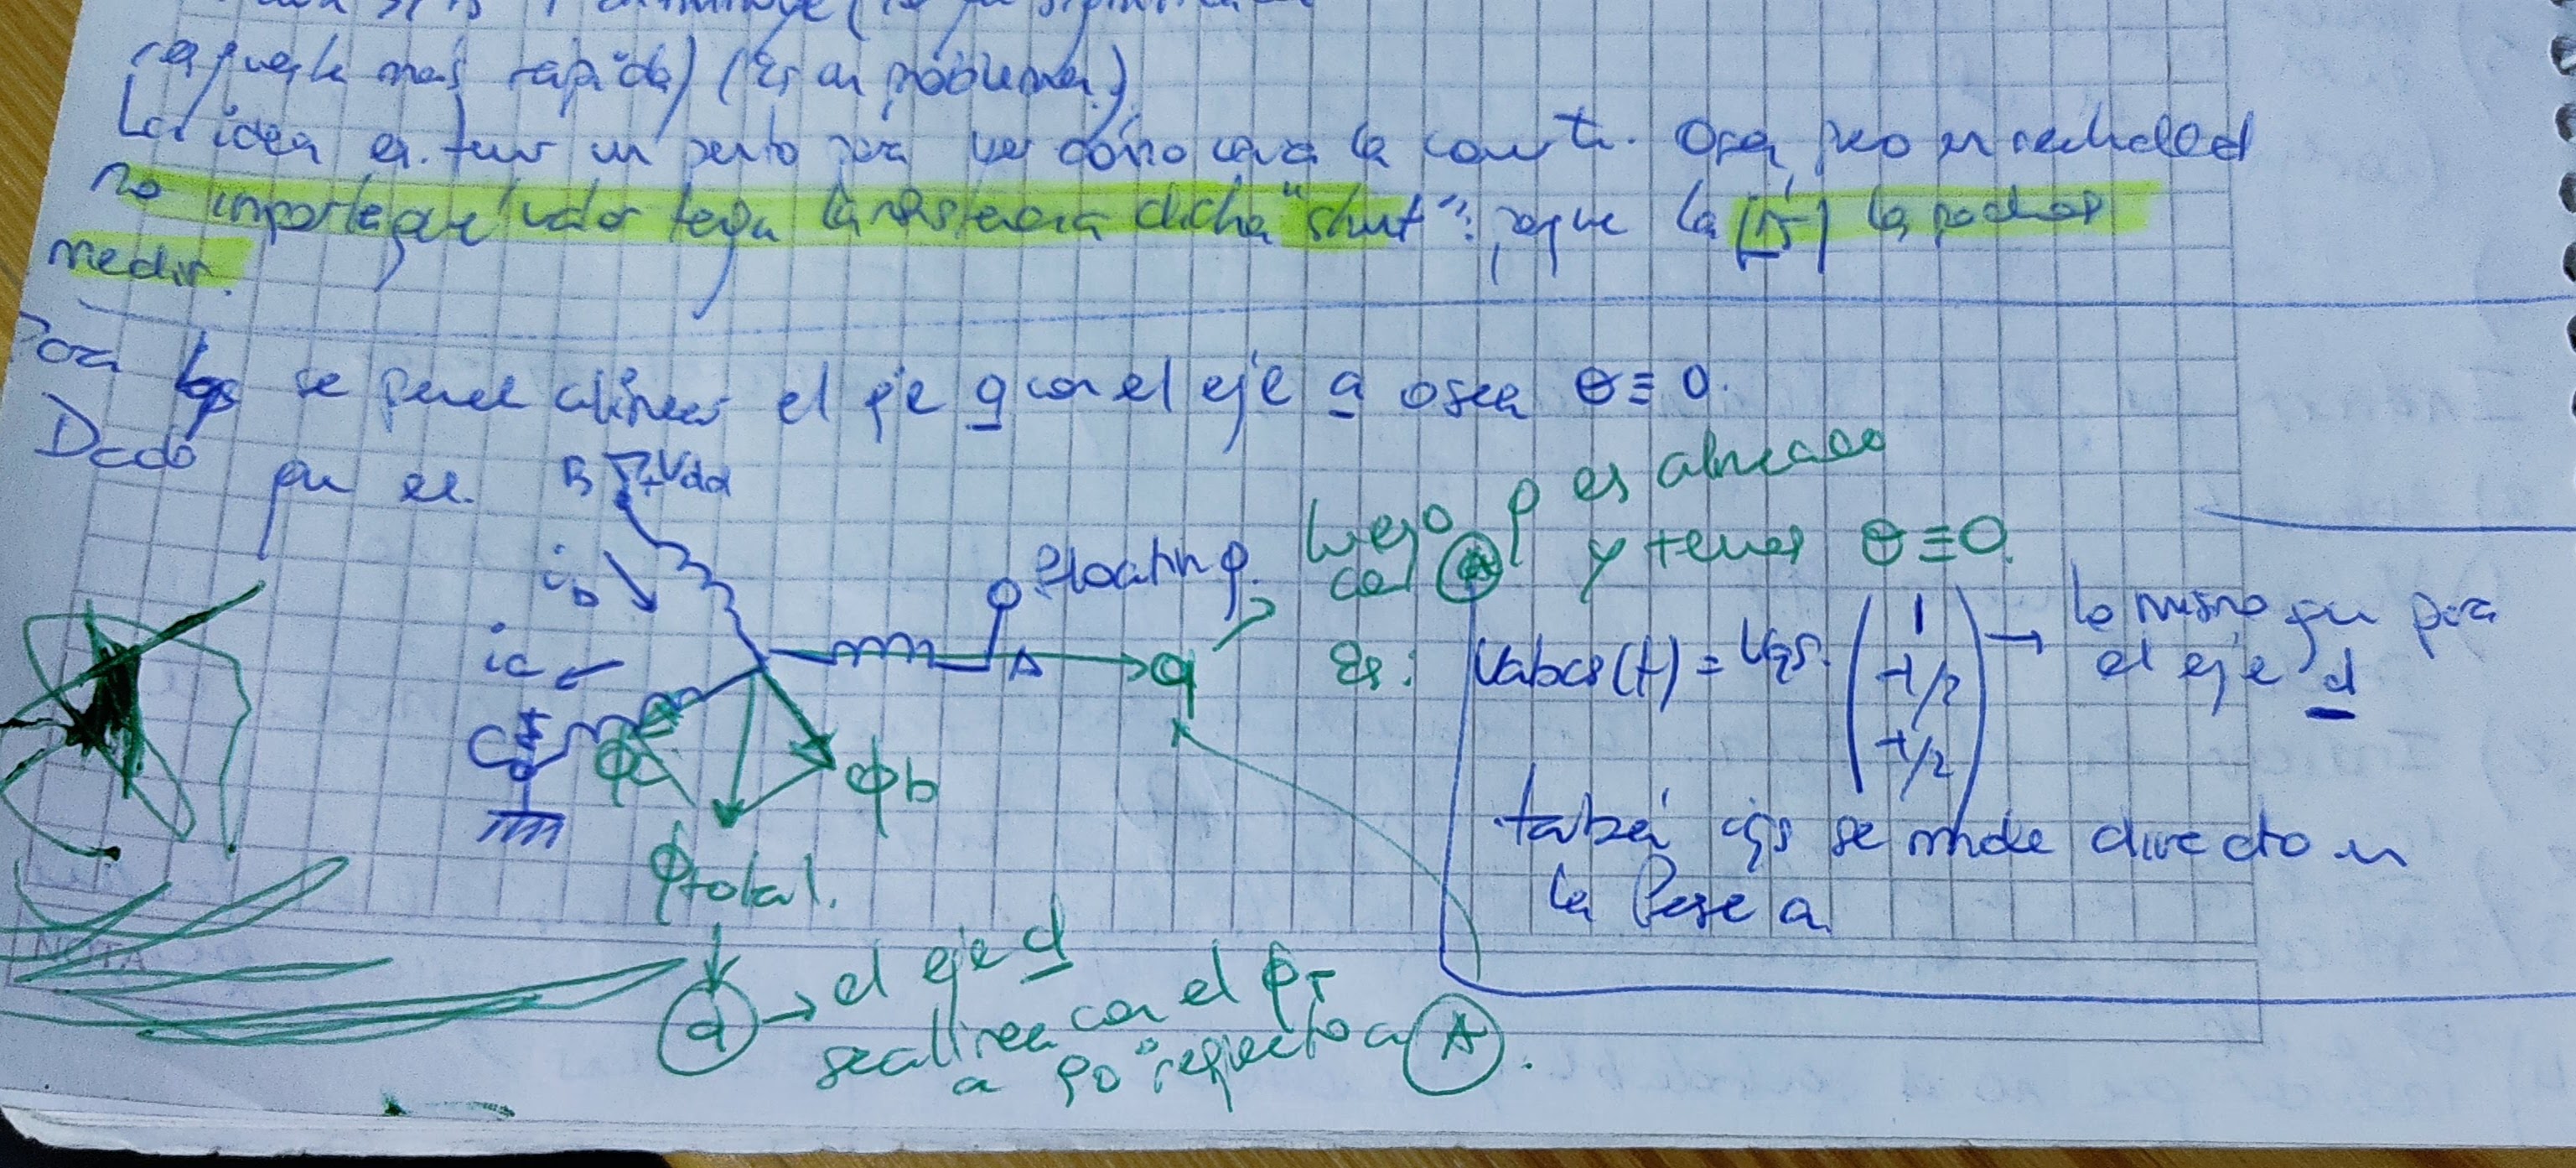 respuesta más rápida) (Es un problema.)
La idea es. tener un punto para ver cómo crece la corriente. Osea, pero en realidad
no importe que valor tenga la resistencia dicha "shut": porque la (τ) la podemos
medir.
Para Lqs se puede alinear el eje q con el eje a osea θ ≡ 0.
Dado que el
B +Vdd
ib
ic
C
floating.
A
q
φc
φb
φtotal.
d → el eje d
se alinea con el φT
a 90° respecto a A.
luego q es alineado
con A y tenes θ ≡ 0.
Es: Vabcs(t) = Vqs. (1 -1/2 -1/2) → lo mismo que para
el eje d
también iqs se mide directo en
la fase a
NOTA